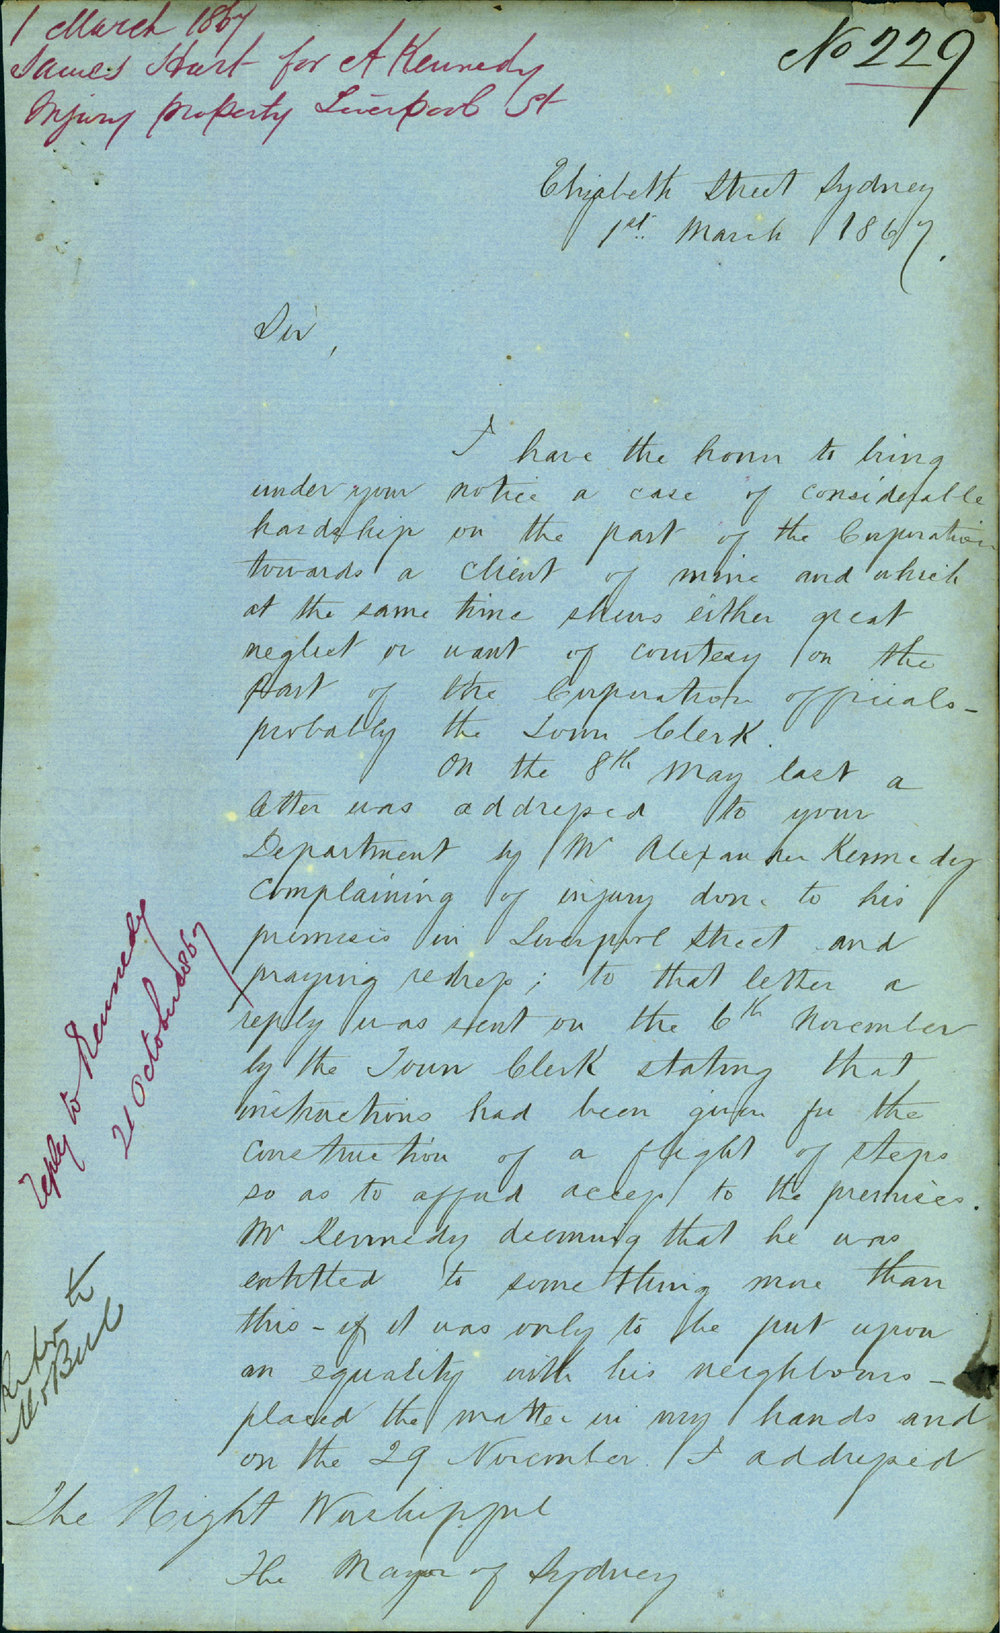 1 March 1867
James Hart for A Kennedy
Injury property Liverpool St
No 229
Elizabeth Street Sydney
1st March 1867.
Sir,
I have the honor to bring
under your notice a case of considerable
hardship on the part of the Corporation
towards a client of mine and which
at the same time shews either great
neglect or want of courtesy on the
part of the Corporation officials –
probably the Town Clerk.
On the 8th May last a
letter was addressed to your
Department by Mr Alexander Kennedy
complaining of injury done to his
premises in Liverpool Street and
praying redress; to that letter a
reply was sent on the 6th November
by the Town Clerk stating that
instructions had been given for the
construction of a flight of steps
so as to afford access to the premises.
Mr Kennedy deeming that he was
entitled to something more than
this – if it was only to be put upon
an equality with his neighbours –
placed the matter in my hands and
on the 29 November I addressed
The Right Worshipful
The Mayor of Sydney
reply to Kennedy
21 October 1867
Refer to
Mr Bell